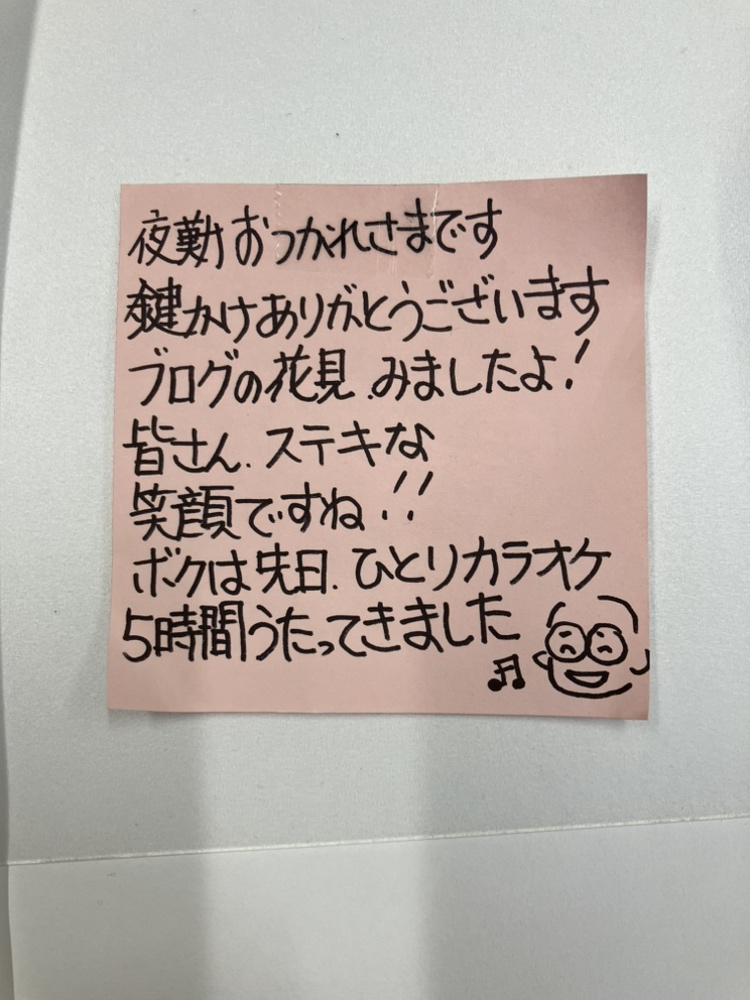 夜勤おつかれさまです
鍵かけありがとうございます
ブログの花見.みましたよ!
皆さん.ステキな
笑顔ですね!!
ボクは先日.ひとりカラオケ
5時間うたってきました